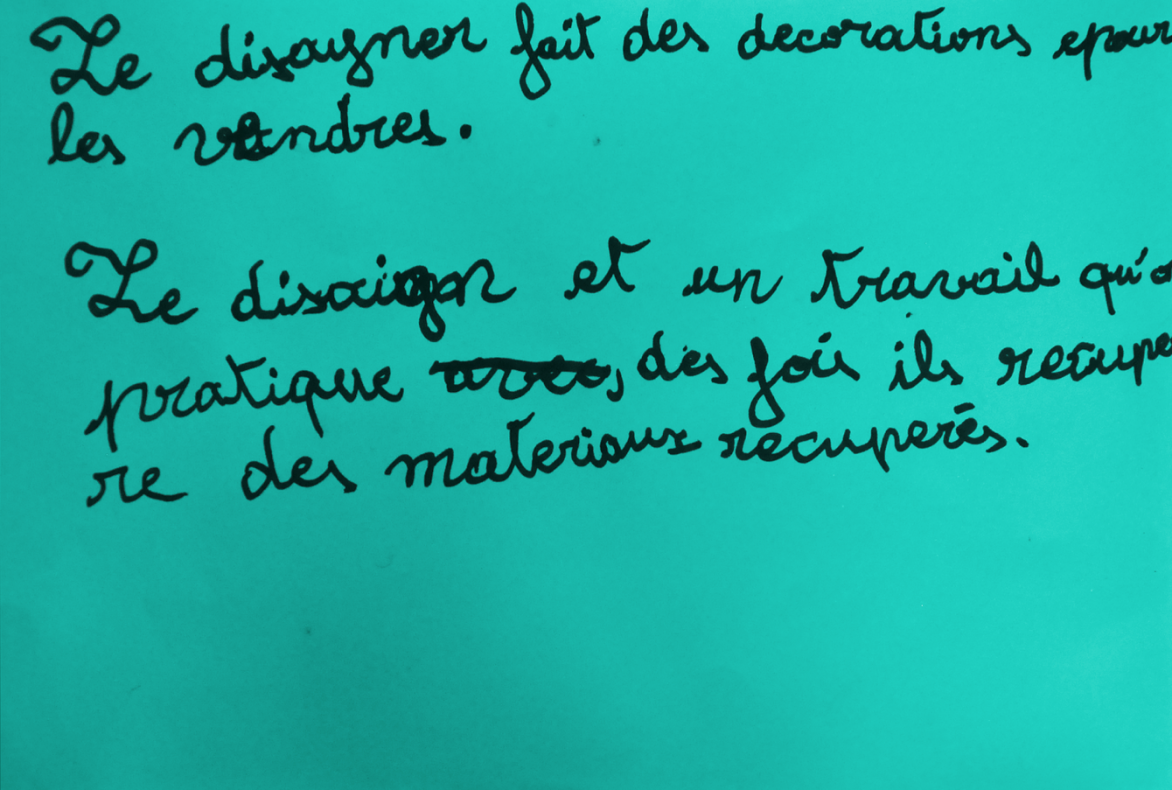 Le disayner fait des decorations epour
les vendres.
Le disaign et un travail
pratique, des fois ils recupe
re des materiaux recuperés.